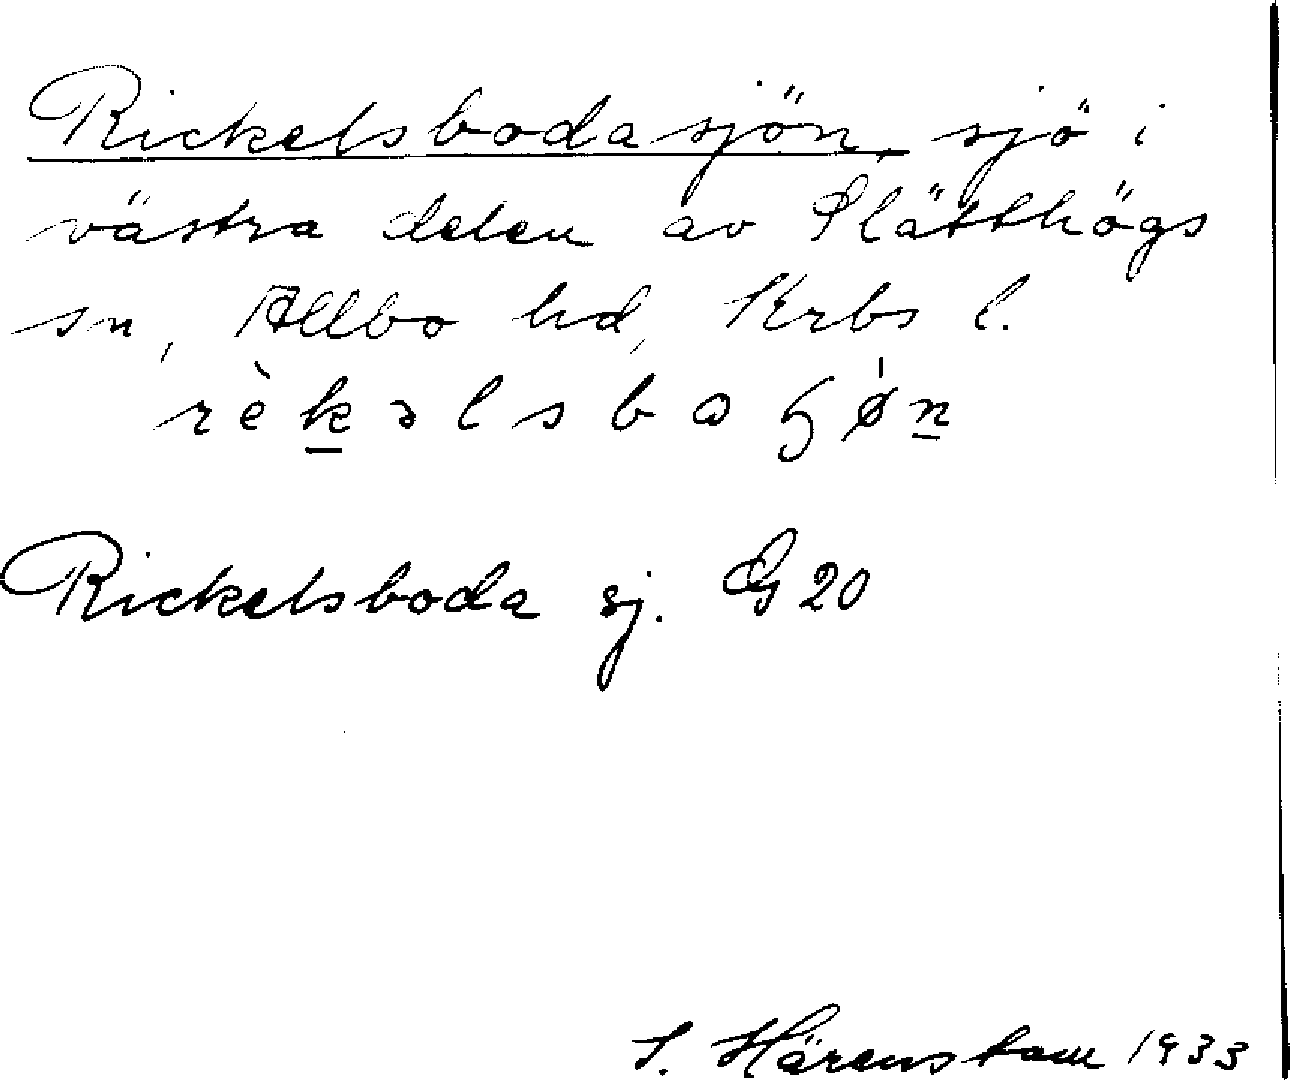 Rickelsbodasjön, sjö i
västra delen av Slätthögs
sn, Allbo hd, Krbs l.
rèkəlsbɑɧøn
Rickelsboda sj. G 20
S. Härenstam 1933